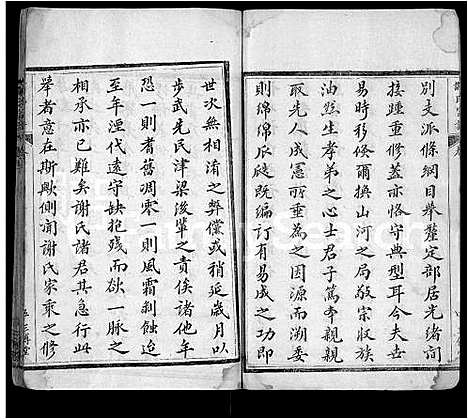 別支派條綱目舉釐定部居光緒間
接踵重修蓋亦恪守典型耳今夫世
易時移倏爾換山河之局敬宗收族
油然生孝弟之心士君子篤本親親
取先人成憲而垂為之因源而溯委
則綿綿瓜瓞既編訂有易成之功即
世次無相淆之弊儻或稍延歲月以
步武先民津梁後輩之責俟諸他年
恐一則耆舊凋零一則風霜剝蝕迨
至年湮代遠守缺抱殘而欲一脈之
相承亦已難矣謝氏諸君其急行此
舉者意在斯歟側聞謝氏宗乘之修